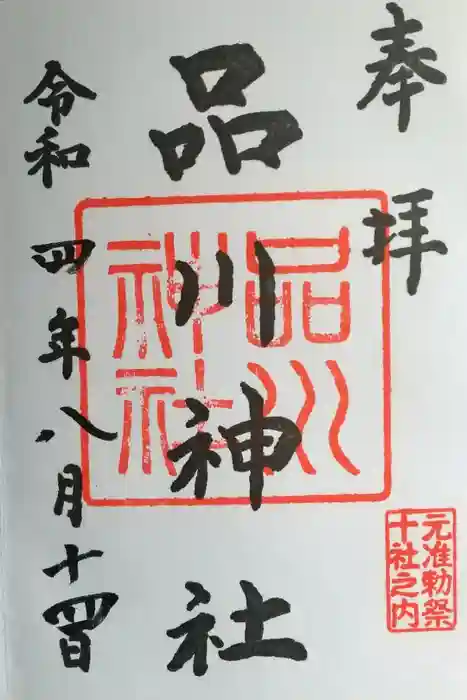 奉拝
品川神社
品川
神社
令和四年八月十四日
元准勅祭
十社之内